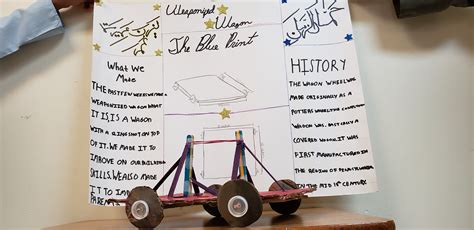 Weaponized
Wagon
The Blue Print
What We
Made
THE PAST FEW WEEKS WE MADE A
WEAPONIZED WAGON WHAT
IT IS, IS A WAGON
WITH A SLINGSHOT ON TOP
OF IT. WE MADE IT TO
IMPROVE ON OUR BUILDING
SKILLS. WE ALSO MADE
IT TO
PARENTS
HISTORY
THE WAGON WHEEL WAS
MADE ORIGINALLY AS A
POTTERS WHEEL. THE
WAGON WAS. BASICALLY A
COVERED WAGON. IT WAS
FIRST MANUFACTURED IN
THE REGION OF
IN THE MID 18th CENTURY